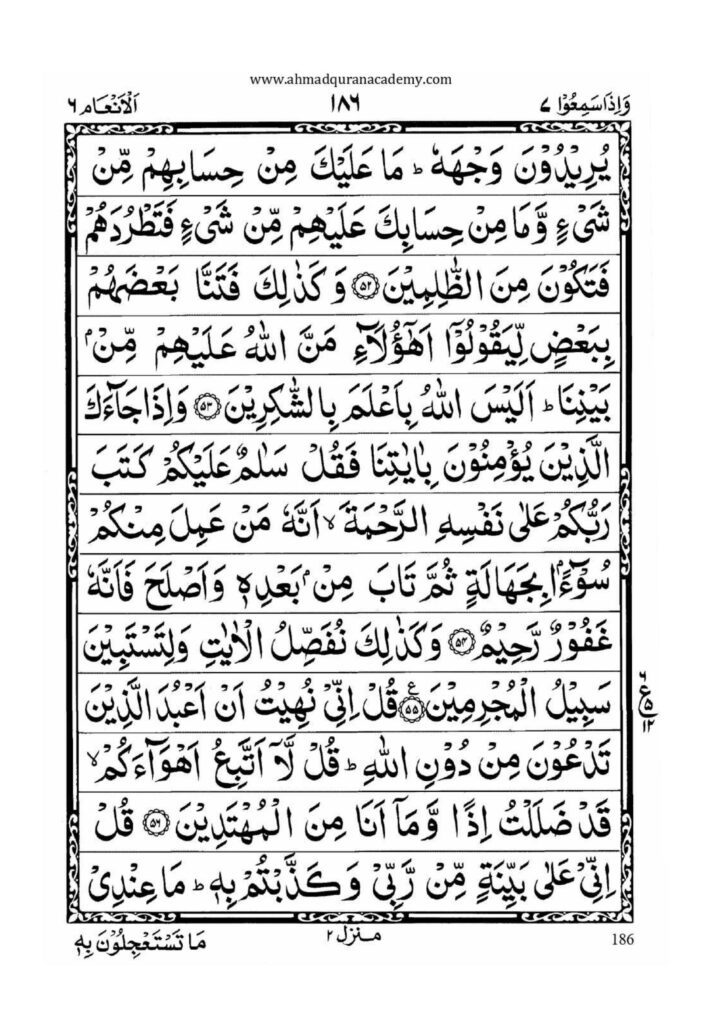 www.ahmadquranacademy.com
وَاِذَاسَمِعُوْا ۷ ۱۸۶ اَلْاَنْعَام ۶
يُرِيْدُوْنَ وَجْهَهٗ ؕ مَا عَلَيْكَ مِنْ حِسَابِهِمْ مِّنْ
شَيْءٍ وَّمَا مِنْ حِسَابِكَ عَلَيْهِمْ مِّنْ شَيْءٍ فَتَطْرُدَهُمْ
فَتَكُوْنَ مِنَ الظّٰلِمِيْنَ ۝۵۲ وَكَذٰلِكَ فَتَنَّا بَعْضَهُمْ
بِبَعْضٍ لِّيَقُوْلُوْۤا اَهٰۤؤُلَآءِ مَنَّ اللّٰهُ عَلَيْهِمْ مِّنْۢ
بَيْنِنَا ؕ اَلَيْسَ اللّٰهُ بِاَعْلَمَ بِالشّٰكِرِيْنَ ۝۵۳ وَاِذَا جَآءَكَ
الَّذِيْنَ يُؤْمِنُوْنَ بِاٰيٰتِنَا فَقُلْ سَلٰمٌ عَلَيْكُمْ كَتَبَ
رَبُّكُمْ عَلٰى نَفْسِهِ الرَّحْمَةَ ۙ اَنَّهٗ مَنْ عَمِلَ مِنْكُمْ
سُوْٓءًۢا بِجَهَالَةٍ ثُمَّ تَابَ مِنْۢ بَعْدِهٖ وَاَصْلَحَ فَاَنَّهٗ
غَفُوْرٌ رَّحِيْمٌ ۝۵۴ وَكَذٰلِكَ نُفَصِّلُ الْاٰيٰتِ وَلِتَسْتَبِيْنَ
سَبِيْلُ الْمُجْرِمِيْنَ ۝۵۵ ع قُلْ اِنِّيْ نُهِيْتُ اَنْ اَعْبُدَ الَّذِيْنَ
۶ ع ۵ ۱۲
تَدْعُوْنَ مِنْ دُوْنِ اللّٰهِ ؕ قُلْ لَّاۤ اَتَّبِعُ اَهْوَآءَكُمْ ۙ
قَدْ ضَلَلْتُ اِذًا وَّمَاۤ اَنَا مِنَ الْمُهْتَدِيْنَ ۝۵۶ قُلْ
اِنِّيْ عَلٰى بَيِّنَةٍ مِّنْ رَّبِّيْ وَكَذَّبْتُمْ بِهٖ ؕ مَا عِنْدِيْ
186 منزل ۲ مَا تَسْتَعْجِلُوْنَ بِهٖ